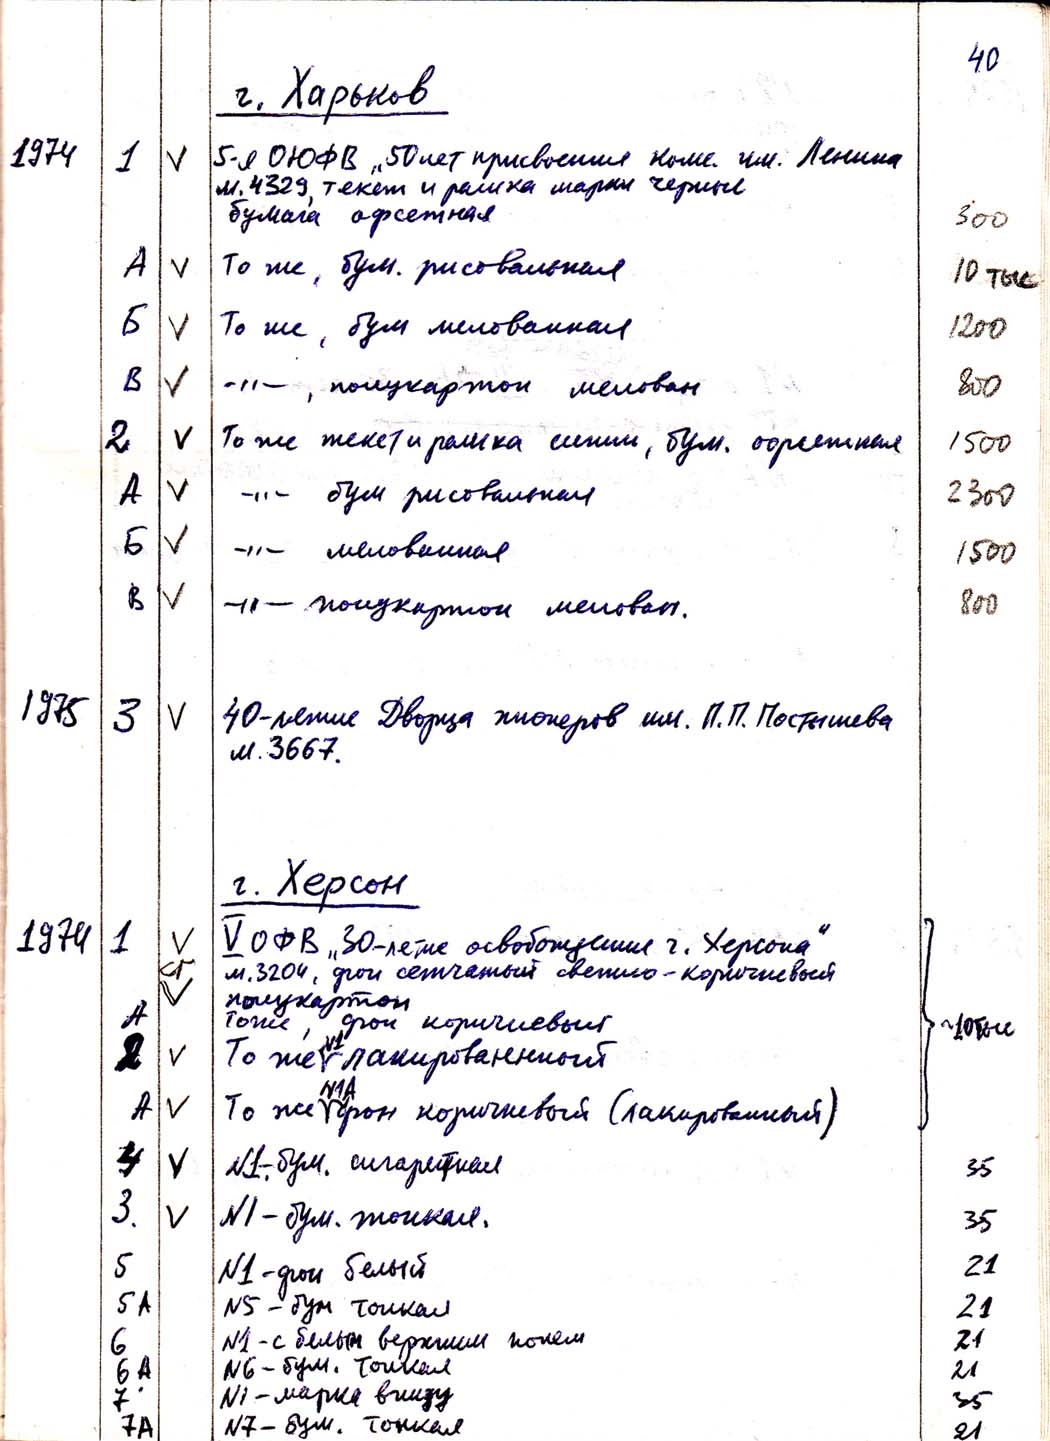 40
г. Харьков
1974 1 V 5-я ОЮФВ „50 лет присвоения комс. им. Ленина
м. 4329, текст и рамка марки черные
бумага офсетная 300
А V То же, бум. рисовальная 10 тыс
Б V То же, бум мелованная 1200
В V -"- , полукартон мелован 800
2 V То же текст и рамка синии, бум. офсетная 1500
А V -"- бум рисовальная 2300
Б V -"- мелованная 1500
В V -"- полукартон мелован. 800
1975 3 V 40-летие Дворца пионеров им. П.П. Постышева
м. 3667.
г. Херсон
1974 1 V V ОФВ „30-летие освобождения г. Херсона"
ст. м. 3204, фон сетчатый светло-коричневый
V полукартон
А То же, фон коричневый ~10тыс
2 V То же N1 лакированный
А V То же N1А фон коричневый (лакированный)
4 V N1-бум. сигаретная 35
3. V N1-бум. тонкая. 35
5 N1-фон белый 21
5А N5-бум тонкая 21
6 N1-с белым верхним полем 21
6А N6-бум. тонкая 21
7 N1-марка внизу 35
7А N7-бум. тонкая 21